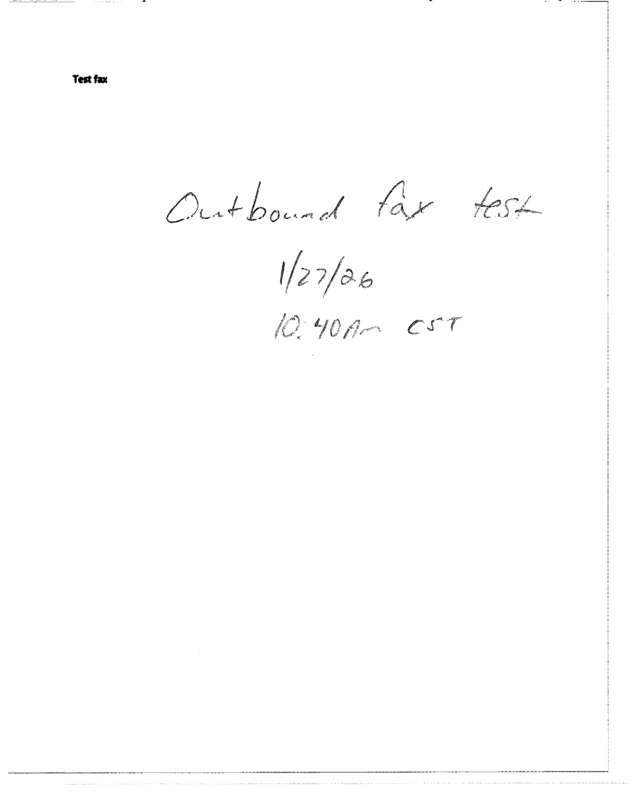 Test fax
Outbound fax test
1/27/26
10:40 Am CST